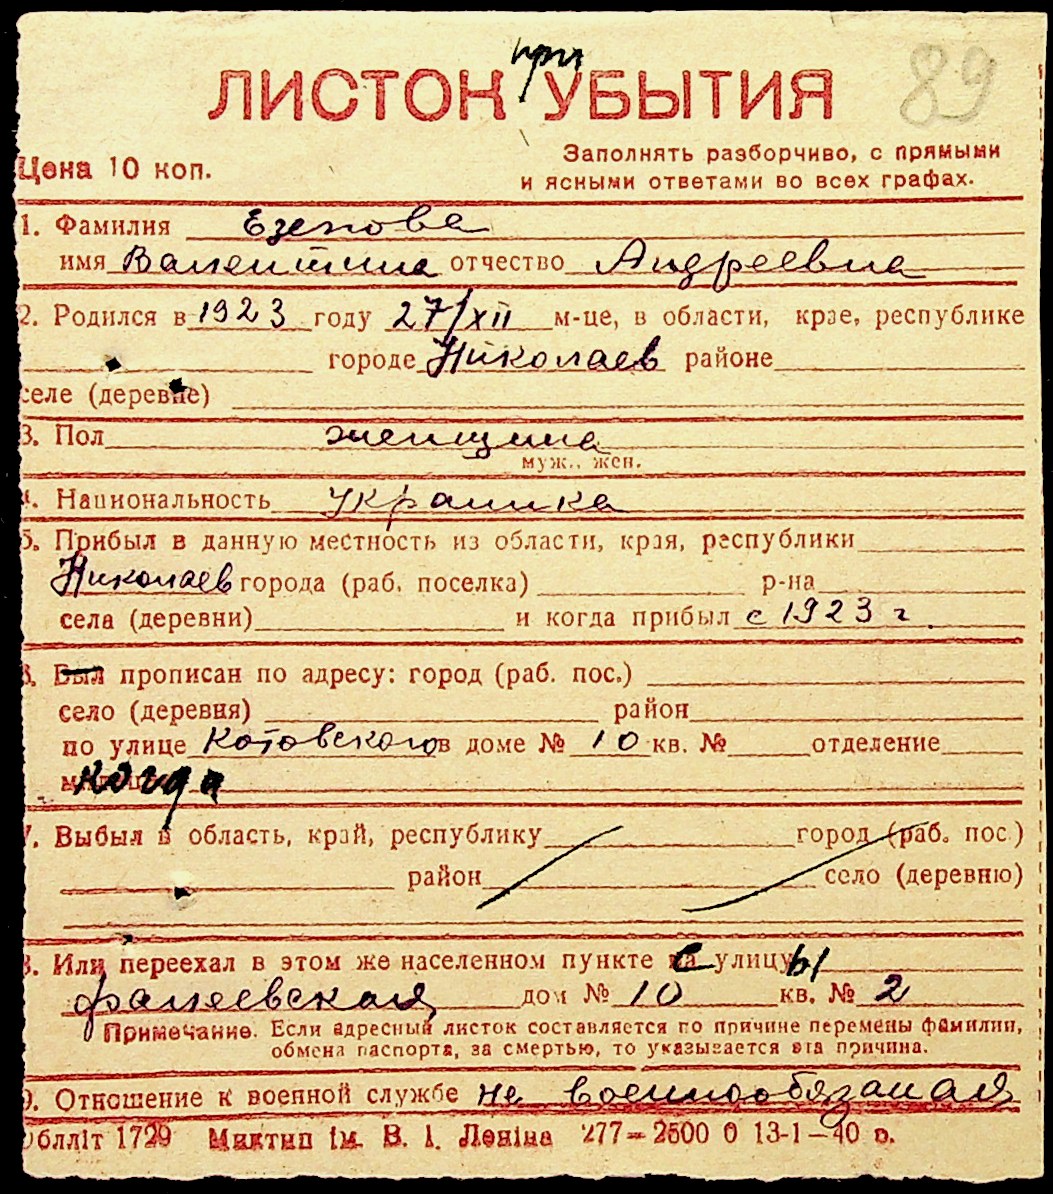 при
ЛИСТОК УБЫТИЯ
89
Цена 10 коп.
Заполнять разборчиво, с прямыми
и ясными ответами во всех графах.
1. Фамилия Езепова
имя Валентина отчество Андреевна
2. Родился в 1923 году 27/XII м-це, в области, крае, республике
городе Николаев районе
селе (деревне)
3. Пол женщина
муж., жен.
4. Национальность украинка
5. Прибыл в данную местность из области, края, республики
Николаев города (раб. поселка) р-на
села (деревни) и когда прибыл с 1923 г.
6. Был прописан по адресу: город (раб. пос.)
село (деревня) район
по улице Котовского в доме № 10 кв. № отделение
когда
7. Выбыл в область, край, республику город (раб. пос.)
район село (деревню)
8. Или переехал в этом же населенном пункте с улицы
фалеевская дом № 10 кв. № 2
Примечание. Если адресный листок составляется по причине перемены фамилии,
обмена паспорта, за смертью, то указывается эта причина.
9. Отношение к военной службе не военнообязаная
Обллiт 1729 Миктип iм. В. I. Ленiна 277—2500 0 13-1—40 р.